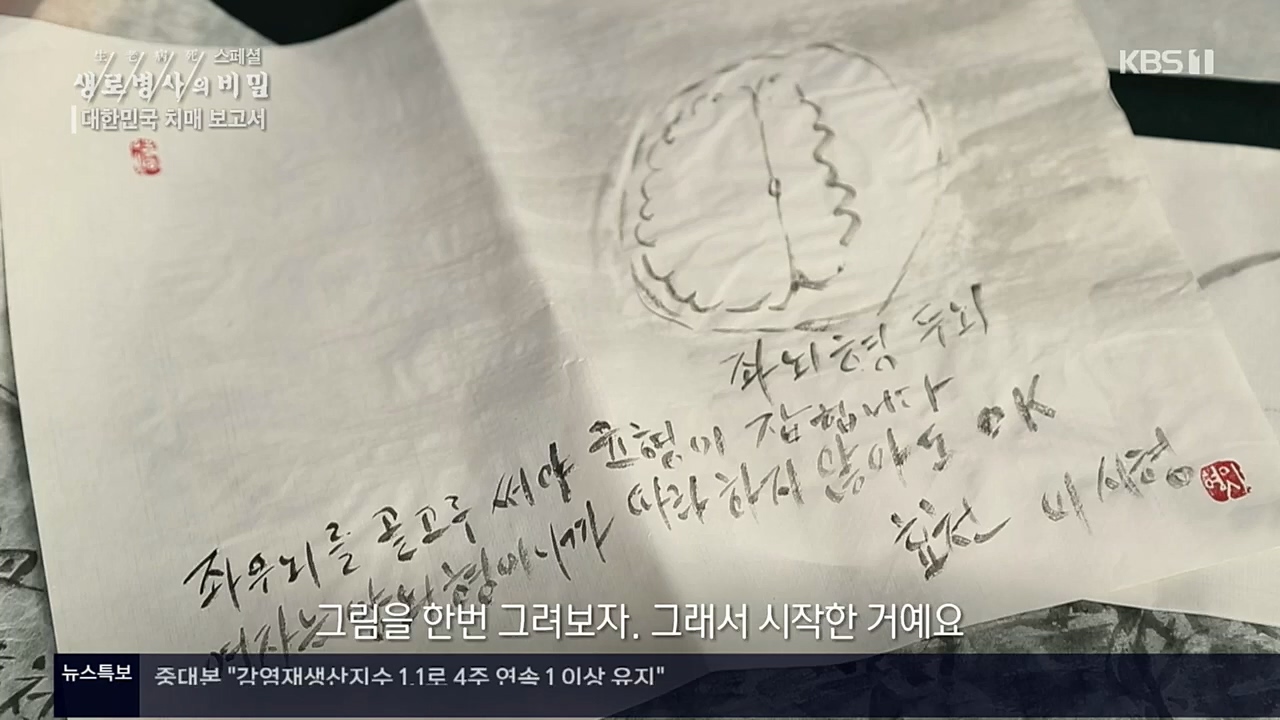 生老病死 스페셜
생로병사의 비밀
대한민국 치매 보고서
KBS1
좌뇌형 두뇌
좌우뇌를 골고루 써야 균형이 잡힙니다
여자는 양뇌형이니까 따라 하지 않아도 OK
효천 이시형
그림을 한번 그려보자. 그래서 시작한 거예요
뉴스특보
중대본 "감염재생산지수 1.1로 4주 연속 1 이상 유지"